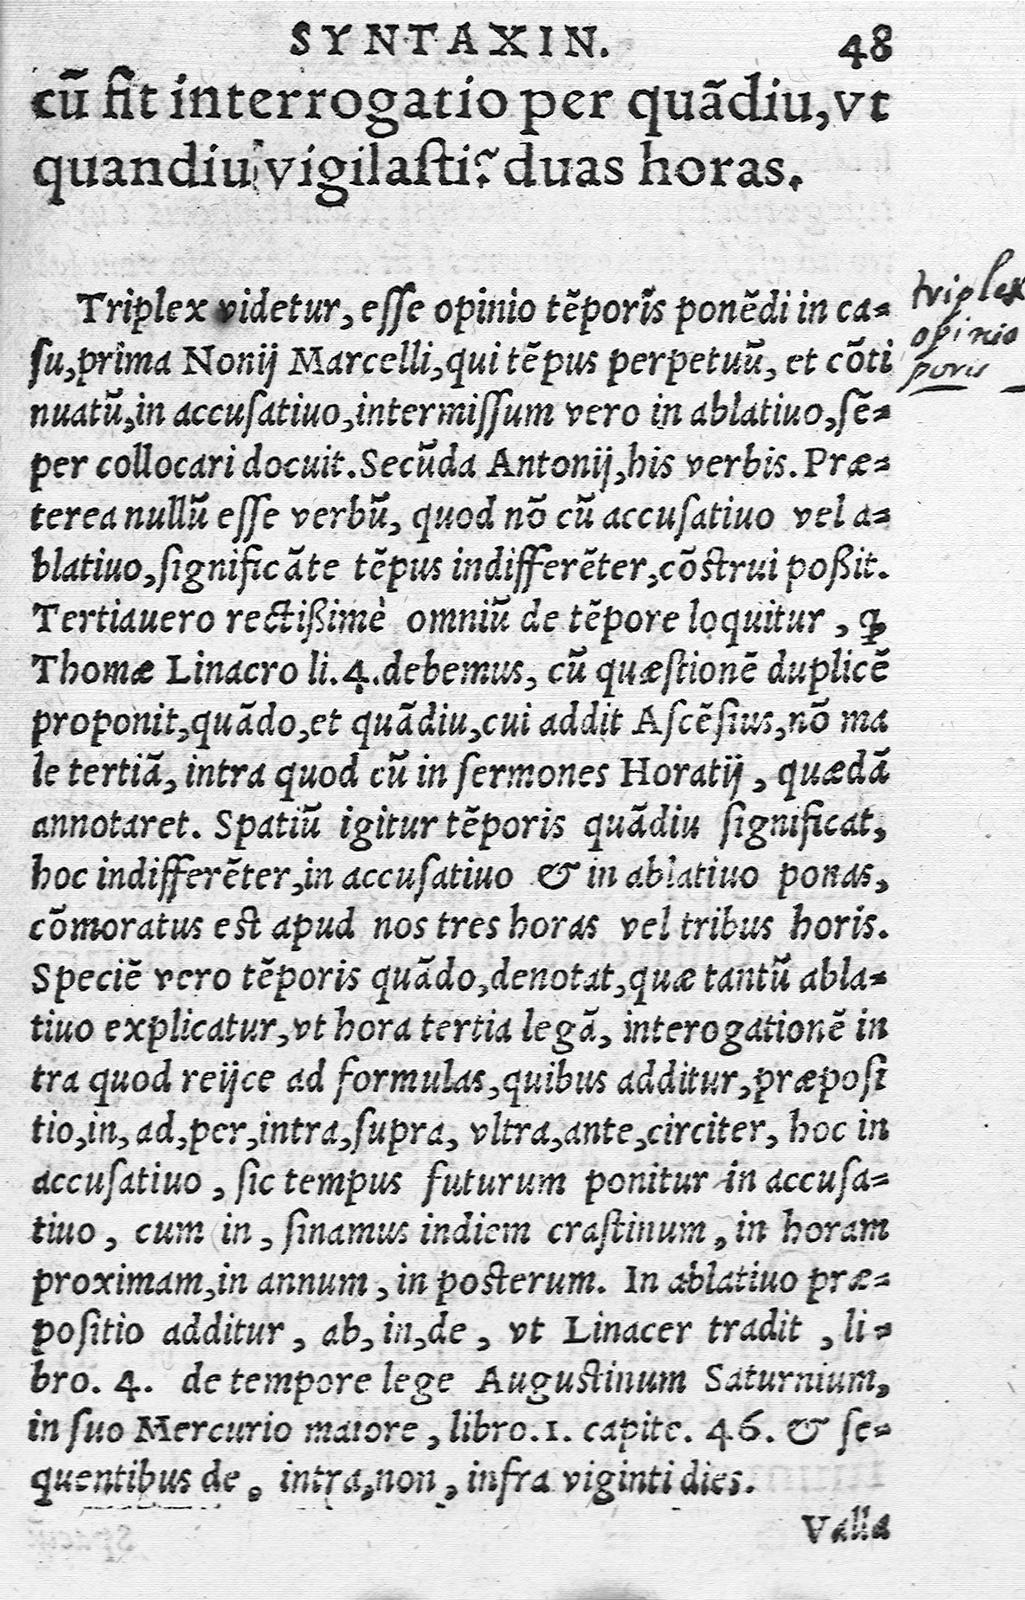 SYNTAXIN. 48
cũ fit interrogatio per quãdiu, vt
quandiu vigilasti? duas horas.
Triplex videtur, esse opinio tẽporis ponẽdi in ca-
su, prima Nonij Marcelli, qui tẽpus perpetuũ, et cõti
nuatũ, in accusatiuo, intermissum vero in ablatiuo, sẽ-
per collocari docuit. Secũda Antonij, his verbis. Præ-
terea nullũ esse verbũ, quod nõ cũ accusatiuo vel a-
blatiuo, significãte tẽpus indifferẽter, cõstrui poßit.
Tertiauero rectißimè omniũ de tẽpore loquitur, ꝙ
Thomæ Linacro li. 4. debemus, cũ quæstionẽ duplicẽ
proponit, quãdo, et quãdiu, cui addit Ascẽsius, nõ ma
le tertiã, intra quod cũ in sermones Horatij, quædã
annotaret. Spatiũ igitur tẽporis quãdiu significat,
hoc indifferẽter, in accusatiuo & in ablatiuo ponas,
cõmoratus est apud nos tres horas vel tribus horis.
Speciẽ vero tẽporis quãdo, denotat, quæ tantũ abla-
tiuo explicatur, vt hora tertia legã, interogationẽ in
tra quod reijce ad formulas, quibus additur, præposi
tio, in, ad, per, intra, supra, vltra, ante, circiter, hoc in
accusatiuo, sic tempus futurum ponitur in accusa-
tiuo, cum in, sinamus indiem crastinum, in horam
proximam, in annum, in posterum. In ablatiuo præ-
positio additur, ab, in, de, vt Linacer tradit, li-
bro. 4. de tempore lege Augustinum Saturnium,
in suo Mercurio maiore, libro. 1. capite. 46. & se-
quentibus de, intra, non, infra viginti dies.
Valla
triplex
opinio
poris